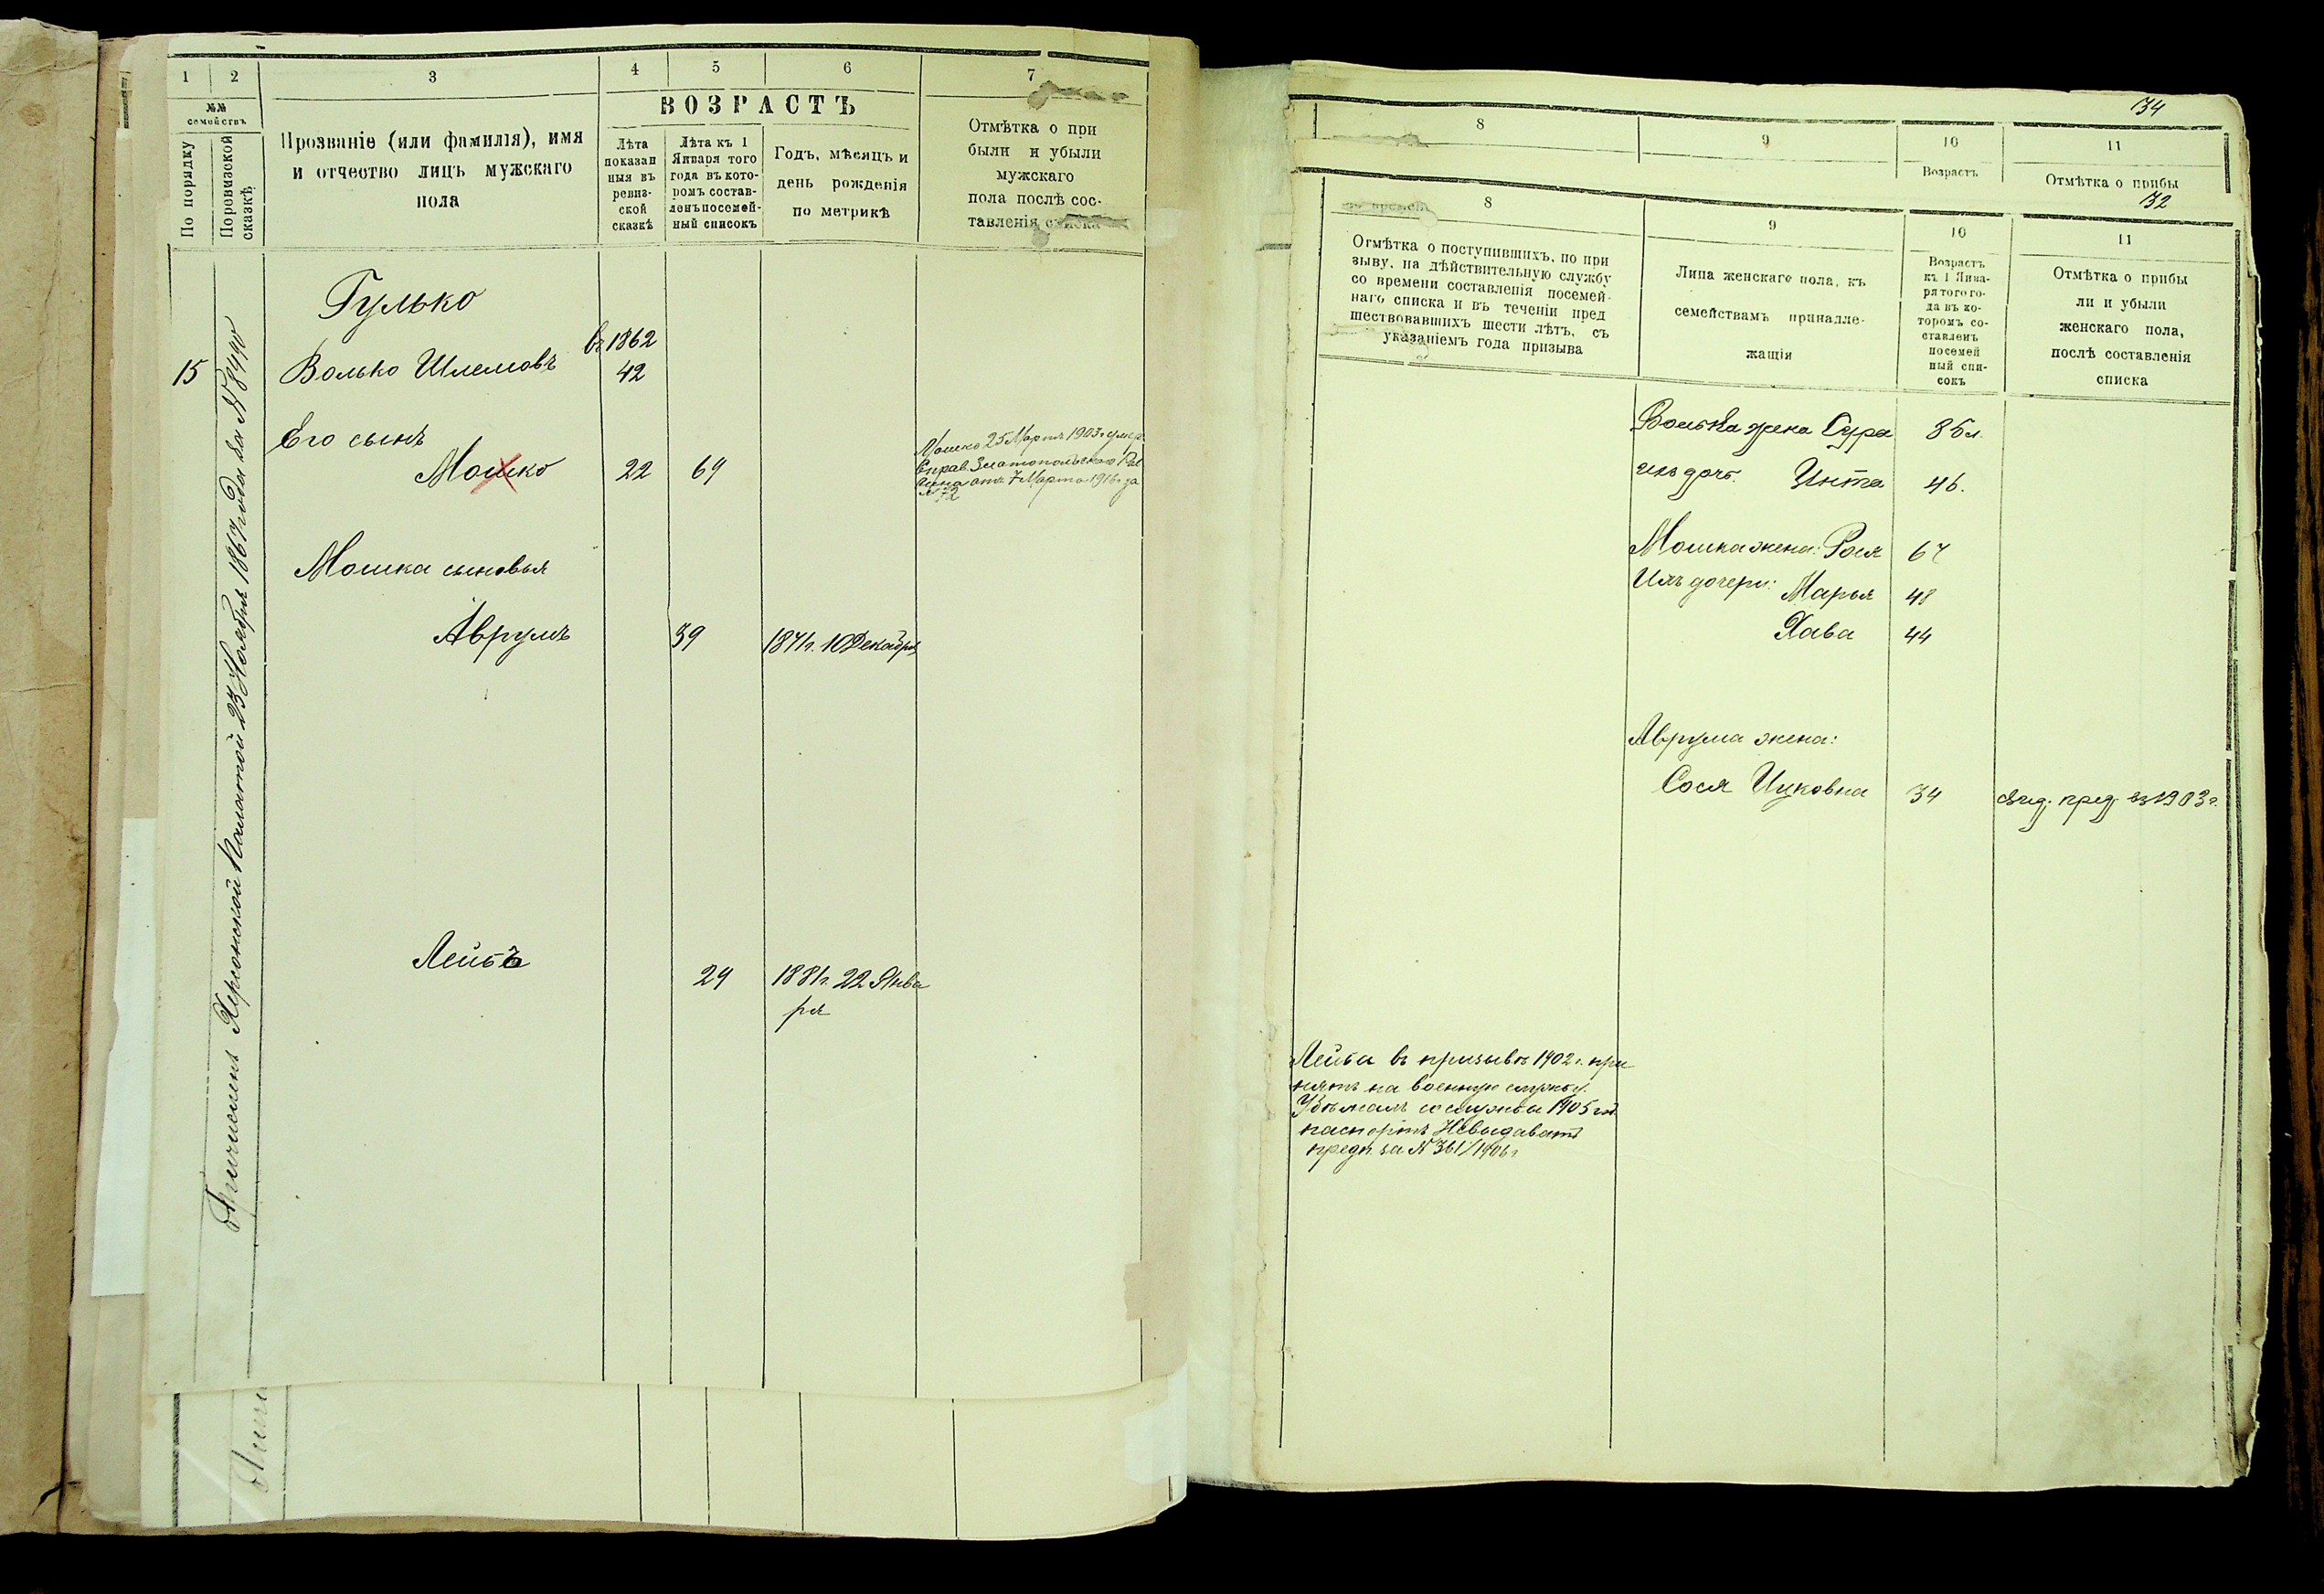 1
2
3
4
5
6
7
№№
семействъ
По порядку
По ревизской
сказкѣ
Прозваніе (или фамилія), имя
и отчество лицъ мужскаго
пола
ВОЗРАСТЪ
Лѣта
показан
ныя въ
ревиз-
ской
сказкѣ
Лѣта къ 1
Января того
года въ кото-
ромъ состав-
ленъ посемей-
ный списокъ
Годъ, мѣсяцъ и
день рожденія
по метрикѣ
Отмѣтка о при
были и убыли
мужскаго
пола послѣ сос-
тавленія списка
15
Причисленъ Херсонской Палатой 23 Ноября 1867 года за №
Гулько
Волько Шлемовъ
въ 1862
42
Его сынъ
Мошко
22
69
Мошко 25 Марта 1903 г. умер
Справ. Златопольскаго
отъ 7 Марта 1916 г. за
№ 72
Мошка сыновья
Аврумъ
39
1871 г. 10 Декабря
Лейба
29
1881 г. 22 Янва
ря
34
8
9
10
11
Возрастъ
Отмѣтка о прибы
32
8
9
10
11
Отмѣтка о поступившихъ, по при
зыву, на дѣйствительную службу
со времени составленія посемей-
наго списка и въ теченіи пред
шествовавшихъ шести лѣтъ, съ
указаніемъ года призыва
Лица женскаго пола, къ
семействамъ принадле-
жащія
Возрастъ
къ 1 Янва-
ря того го-
да въ ко-
торомъ со-
ставленъ
посемей
ный спи-
сокъ
Отмѣтка о прибы
ли и убыли
женскаго пола,
послѣ составленія
списка
Волька жена Сура 86 л.
ихъ дочь: Инта 46.
Мошка жена: Рося 67
Ихъ дочери: Марья 48
Хава 44
Аврума жена:
Сося Ицковна 34
пред. 1903 г.
Лейба въ призывъ 1902 г. при
нятъ на военную службу.
Убѣжалъ со службы 1905 год.
паспортъ Невыдавать
предп. за № 361/1906 г.